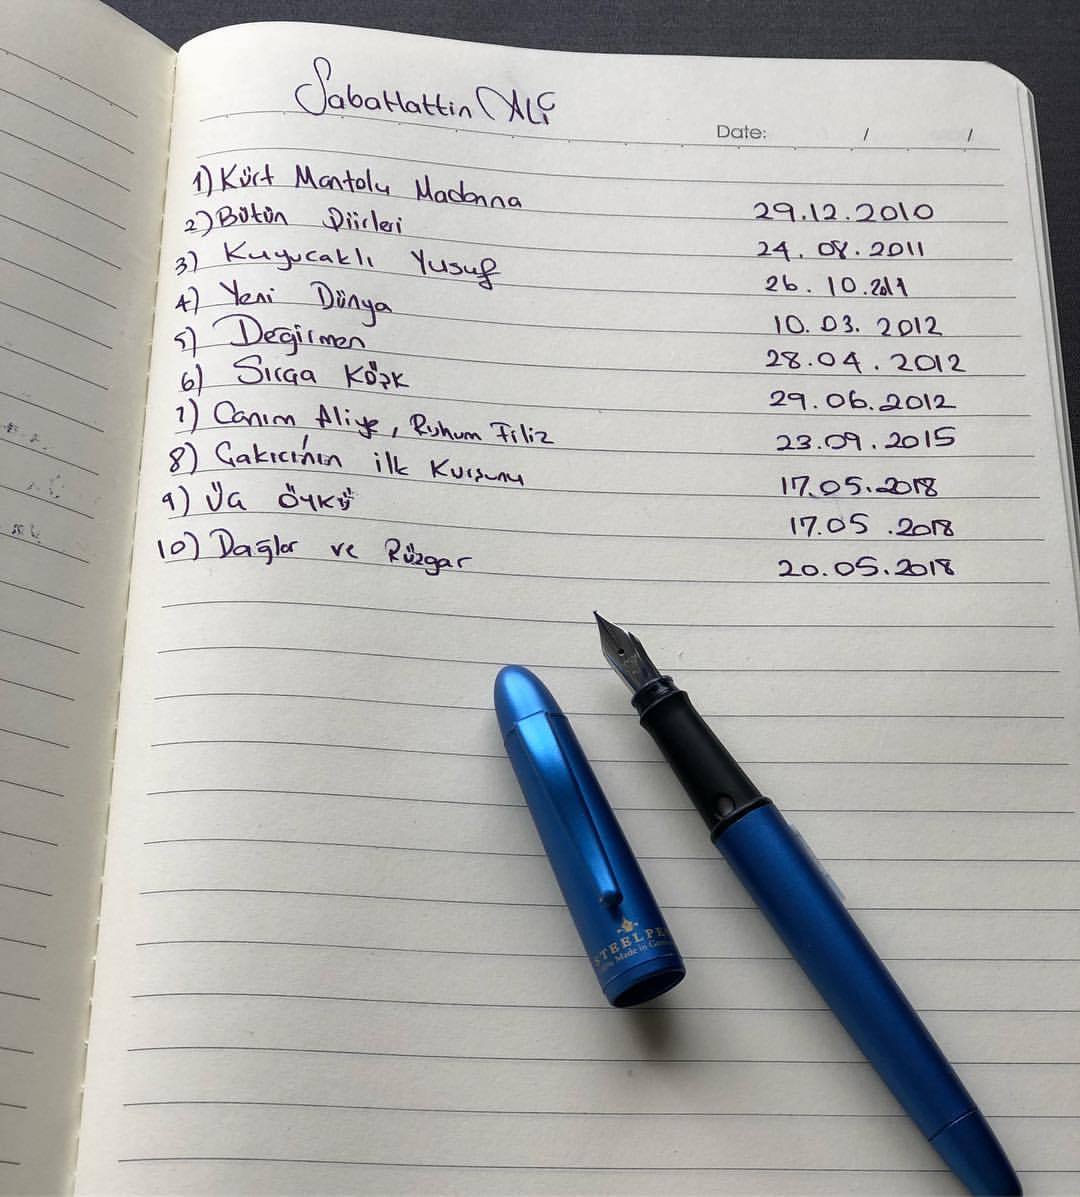 Sabahattin Ali
Date: / /
1) Kürt Mantolu Madonna 29.12.2010
2) Bütün Şiirleri 24.08.2011
3) Kuyucaklı Yusuf 26.10.2011
4) Yeni Dünya 10.03.2012
5) Değirmen 28.04.2012
6) Sırça Köşk 29.06.2012
7) Canım Aliye, Ruhum Filiz 23.09.2015
8) Çakıcı'nın ilk Kurşunu 17.05.2018
9) Üç Öykü 17.05.2018
10) Dağlar ve Rüzgar 20.05.2018
STEELPE
Made in